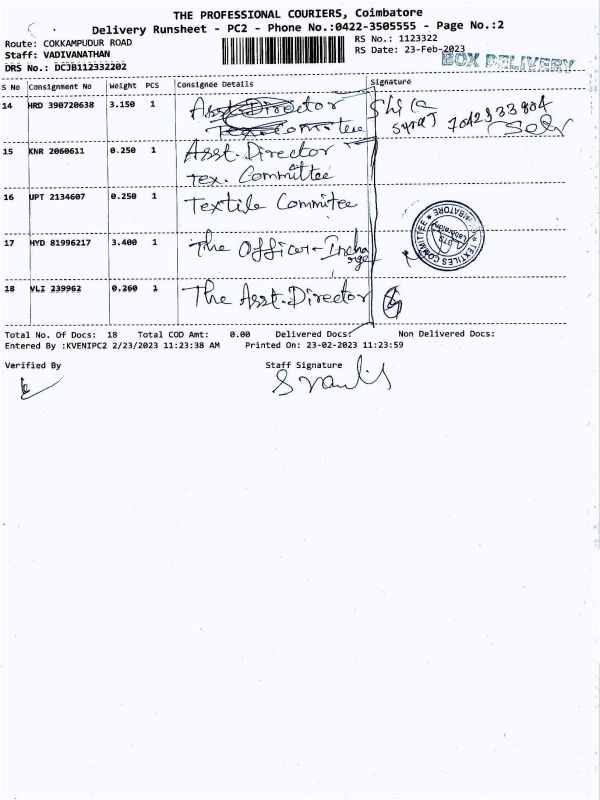 THE PROFESSIONAL COURIERS, Coimbatore
Delivery Runsheet - PC2 - Phone No.:0422-3505555 - Page No.:2
Route: COKKAMPUDUR ROAD RS No.: 1123322
Staff: VADIVANATHAN RS Date: 23-Feb-2023
BOX DELIVERY
DRS No.: DCJB112332202
S No Consignment No Weight PCS Consignee Details Signature
14 HRD 390720638 3.150 1 Asst.Director
Tex.Committee
15 KNR 2060611 0.250 1 Asst.Director
Tex. Committee
16 UPT 2134607 0.250 1 Textile Commitee
TEXTILES COMMITTEE
17 HYD 81996217 3.400 1 The Officer-Incha
rge
18 VLI 239962 0.260 1 The Asst.Director
Total No. Of Docs: 18 Total COD Amt: 0.00 Delivered Docs: Non Delivered Docs:
Entered By :KVENIPC2 2/23/2023 11:23:38 AM Printed On: 23-02-2023 11:23:59
Verified By Staff Signature